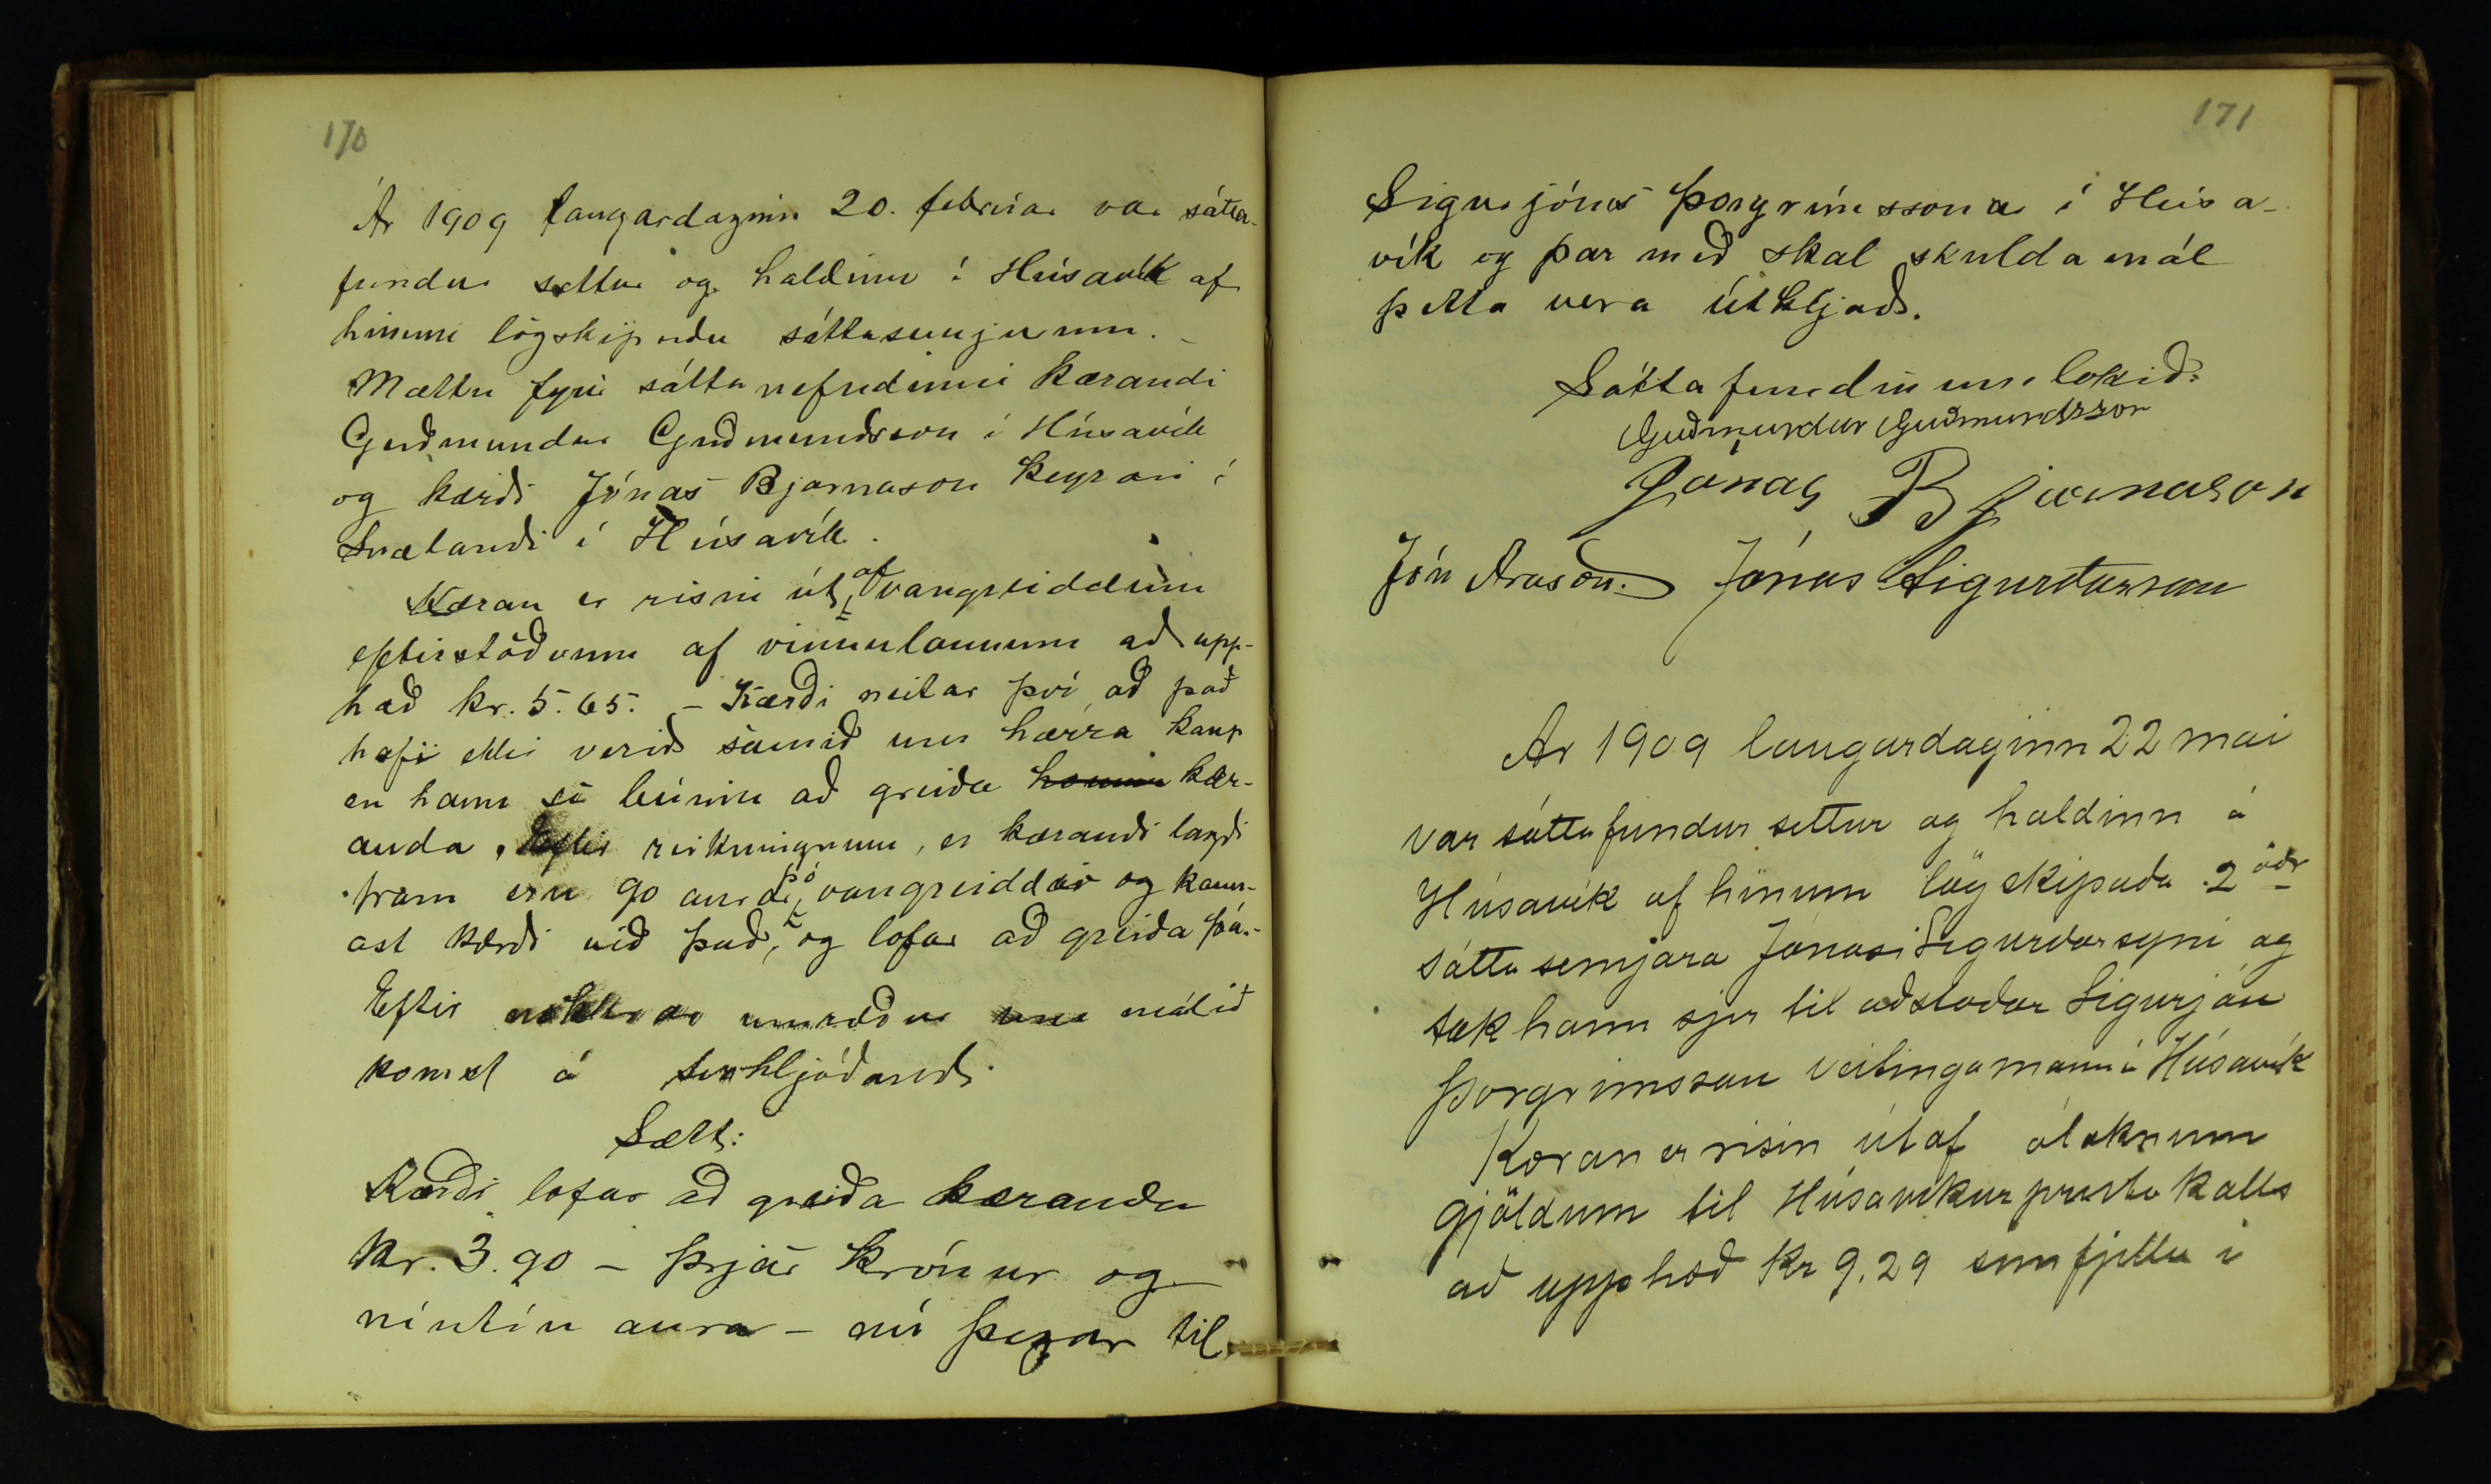 170
Ár 1909 laugardaginn 20. febrúar var sátta-
fundur settur og haldinn í Húsavík af
hinum lögskipuðu sáttasemjurum. -
Mættu fyrir sáttanefndinni kærandi
Guðmundur Guðmundsson í Húsavík
og kærði Jónas Bjarnason keyrari í
Snælandi í Húsavík.
Kæran er risin út af vangreiddum
eptirstöðvum af vinnulaunum að upp-
hæð kr. 5.65. - Kærði neitar því að það
hafi ekki verið samið um hærra kaup
en hann sé búinn að greiða honum kær-
anda. Eftir reikningnum, er kærandi lagði
fram eru 90 aurar þó vangreiddir og kann-
ast kærði við það, og lofar að greiða þá.-
Eftir nokkrar umræður um málið
komst á svohljóðandi
Sætt:
Kærði lofar að greiða kæranda
kr. 3.90 - þrjár krónur og
níutíu aura - nú þegar til
171
Sigurjóns Þorgrímssonar í Húsa-
vík og þar með skal skuldamál
þetta vera útkljáð.
Sáttafundinum lokið:
Guðmundur Guðmundsson
Jónas Bjarnason
Jón Arason. Jónas Sigurðsson
Ár 1909 laugardaginn 22 mai
var sáttafundur settur og haldinn á
Húsavík af hinum lögskipaða 2 öðr
sáttasemjara Jónasi Sigurðarsyni og
tók hann sjer til aðstoðar Sigurjón
Þorgrimsson veitingamann á Húsavík
Kæran er risin útaf óloknum
gjöldum til Húsavíkurprestakalls
að upphæð Kr 9.29 sem fjellu í